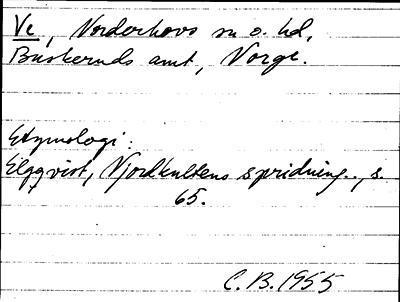 Ve, Norderhovs sn o. hd,
Buskeruds amt, Norge.
Etymologi:
Elgqvist, Njordkultens spridning.., s.
65.
C. B. 1955